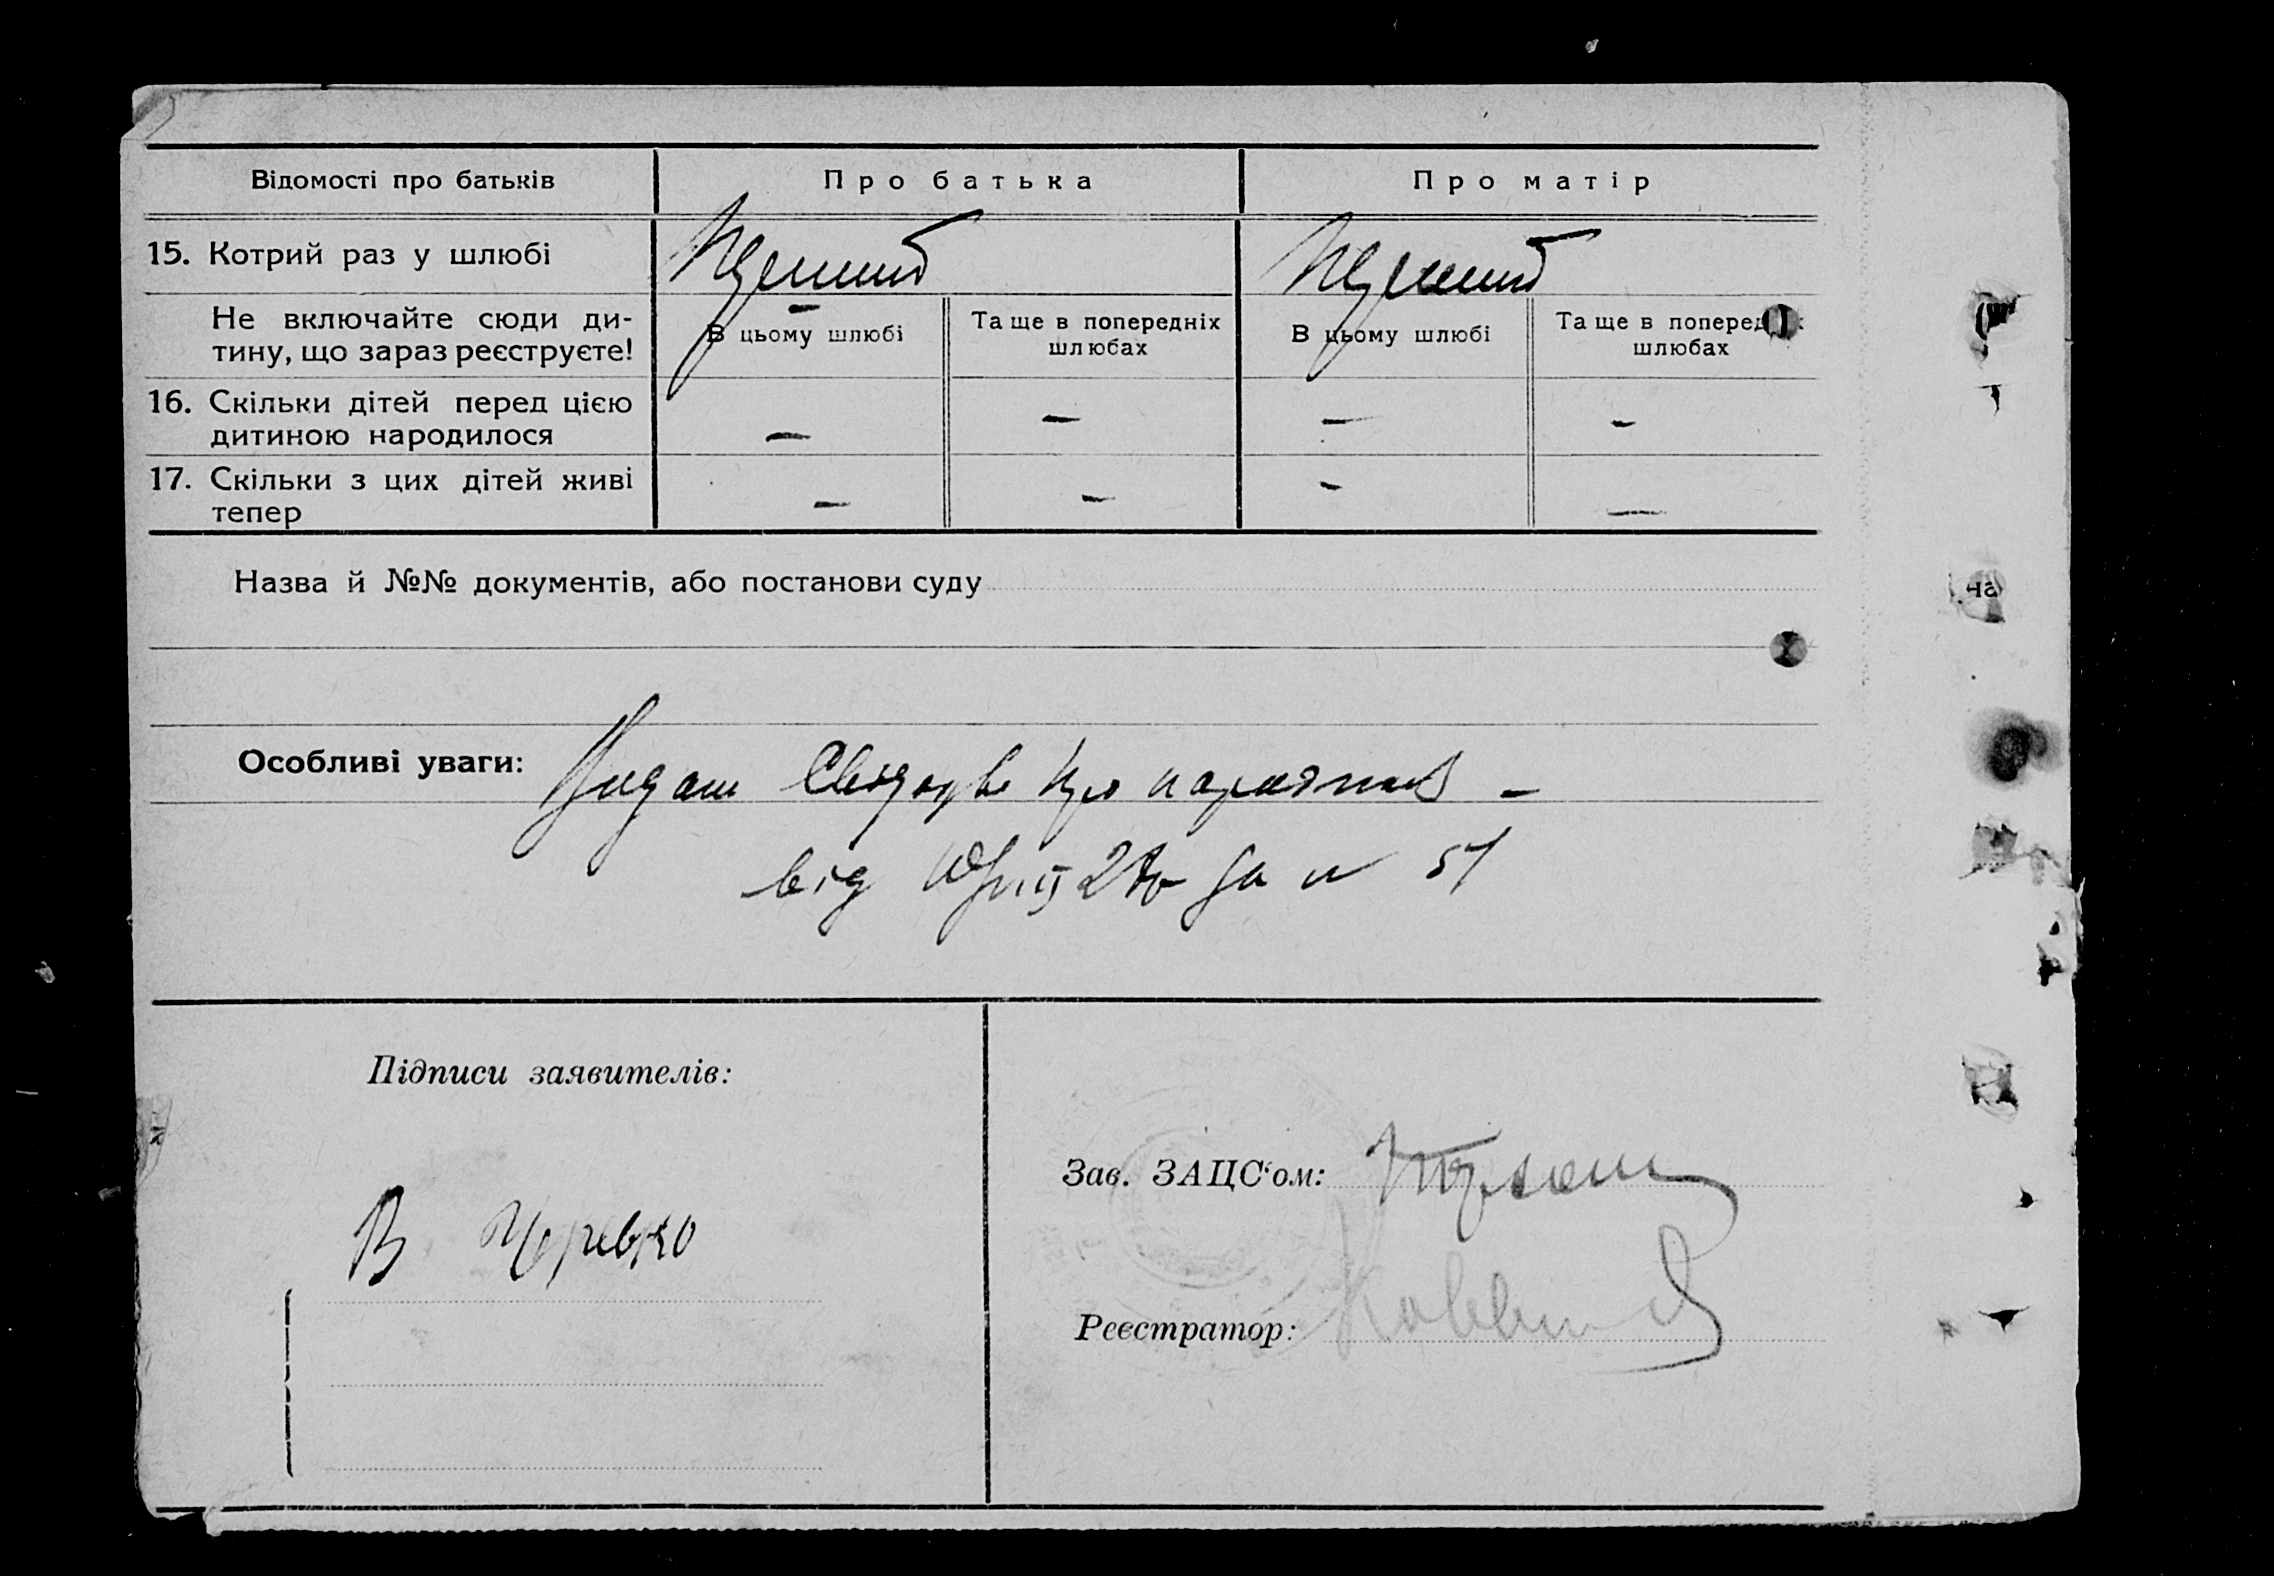 Відомості про батьків
Про батька
Про матір
15. Котрий раз у шлюбі
Перший
Перший
Не включайте сюди ди-
тину, що зараз реєструєте!
В цьому шлюбі
Та ще в попередніх
шлюбах
В цьому шлюбі
Та ще в поперед
шлюбах
16. Скільки дітей перед цією
дитиною народилося
— — — —
17. Скільки з цих дітей живі
тепер
— — — —
Назва й №№ документів, або постанови суду
Особливі уваги:
про –
від за № 51
Підписи заявителів:
В Черевко
Зав. ЗАЦС‘ом:
Реєстратор: